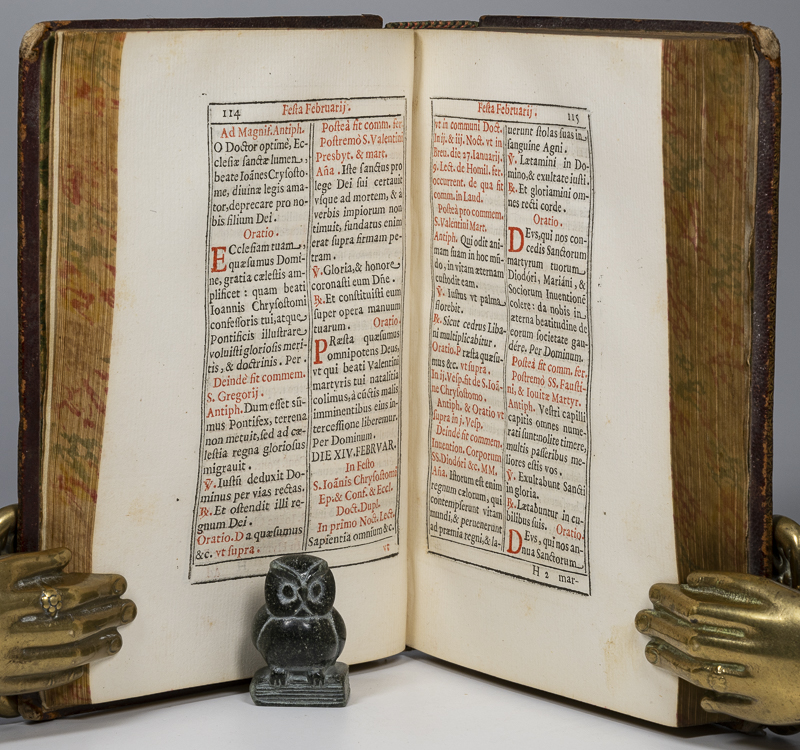 114
Festa Februarij.
Ad Magnif. Antiph.
O Doctor optime, Ec-
clesiæ sanctæ lumen,
beate Ioánes Crysosto-
me, diuinæ legis ama-
tor, deprecare pro no-
bis filium Dei.
Oratio.
ECclesiam tuam,
quæsumus Domi-
ne, gratia cælestis am-
plificet: quam beati
Ioannis Chrysostomi
confessoris tui, atque
Pontificis illustrare
voluisti gloriosis meri-
tis, & doctrinis. Per.
Deinde fit commem.
S. Gregorij.
Antiph. Dum esset sũ-
mus Pontifex, terrena
non metuit, sed ad cæ-
lestia regna gloriosus
migrauit.
℣. Iustũ deduxit Do-
minus per vias rectas.
℟. Et ostendit illi re-
gnum Dei.
Oratio. Da quæsumus
&c. vt supra.
Posteà fit comm. fer.
Postremò S. Valentini
Presbyt. & mart.
Aña. Iste sanctus pro
lege Dei sui certauit
vsque ad mortem, & a
verbis impiorum non
timuit, fundatus enim
erat supra firmam pe-
tram.
℣. Gloria, & honore
coronasti eum Dñe.
℟. Et constituisti eum
super opera manuum
tuarum. Oratio.
PRæsta quæsumus
omnipotens Deus,
vt qui beati Valentini
martyris tui natalitia
colimus, à cũctis malis
imminentibus eius in-
tercessione liberemur.
Per Dominum.
DIE XIV. FEBRVAR.
In Festo
S. Ioãnis Chrysostomi
Ep. & Conf. & Eccl.
Doct. Dupl.
In primo Noct. Lect.
Sapientia omnium &c.
vt
Festa Februarij.
115
vt in communi Doct.
In ij. & iij. Noct. vt in
Breu. die 27. Ianuarij.
9. Lect. de Homil. fer.
occurrent. de qua fit
comm. in Laud.
Posteà pro commem.
S. Valentini Mart.
Antiph. Qui odit ani-
mam suam in hoc mũ-
do, in vitam æternam
custodit eam.
℣. Iustus vt palma
florebit.
℟. Sicut cedrus Liba-
ni multiplicabitur.
Oratio. Præsta quæsu-
mus &c. vt supra.
In ij. Vesp. fit de S. Ioã-
ne Chrysostomo.
Antiph. & Oratio vt
supra in j. Vesp.
Deinde fit commem.
Inuention. Corporum
SS. Diodóri &c. MM.
Aña. Istorum est enim
regnum cælorum, qui
contempserunt vitam
mundi, & peruenerunt
ad præmia regni, & la-
uerunt stolas suas in
sanguine Agni.
℣. Lætamini in Do-
mino, & exultate iusti.
℟. Et gloriamini om-
nes recti corde.
Oratio.
DEvs, qui nos con-
cedis Sanctorum
martyrum tuorum
Diodóri, Mariáni, &
Sociorum Inuentioné
colere: da nobis in
æterna beatitudine de
eorum societate gau-
dére. Per Dominum.
Posteà fit comm. fer.
Postremò SS. Fausti-
ni, & Iouitæ Martyr.
Antiph. Vestri capilli
capitis omnes nume-
rati sunt: nolite timere,
multis passeribus me-
liores estis vos.
℣. Exultabunt Sancti
in gloria.
℟. Lætabuntur in cu-
bilibus suis. Oratio.
DEvs, qui nos an-
nua Sanctorum
H 2 mar-